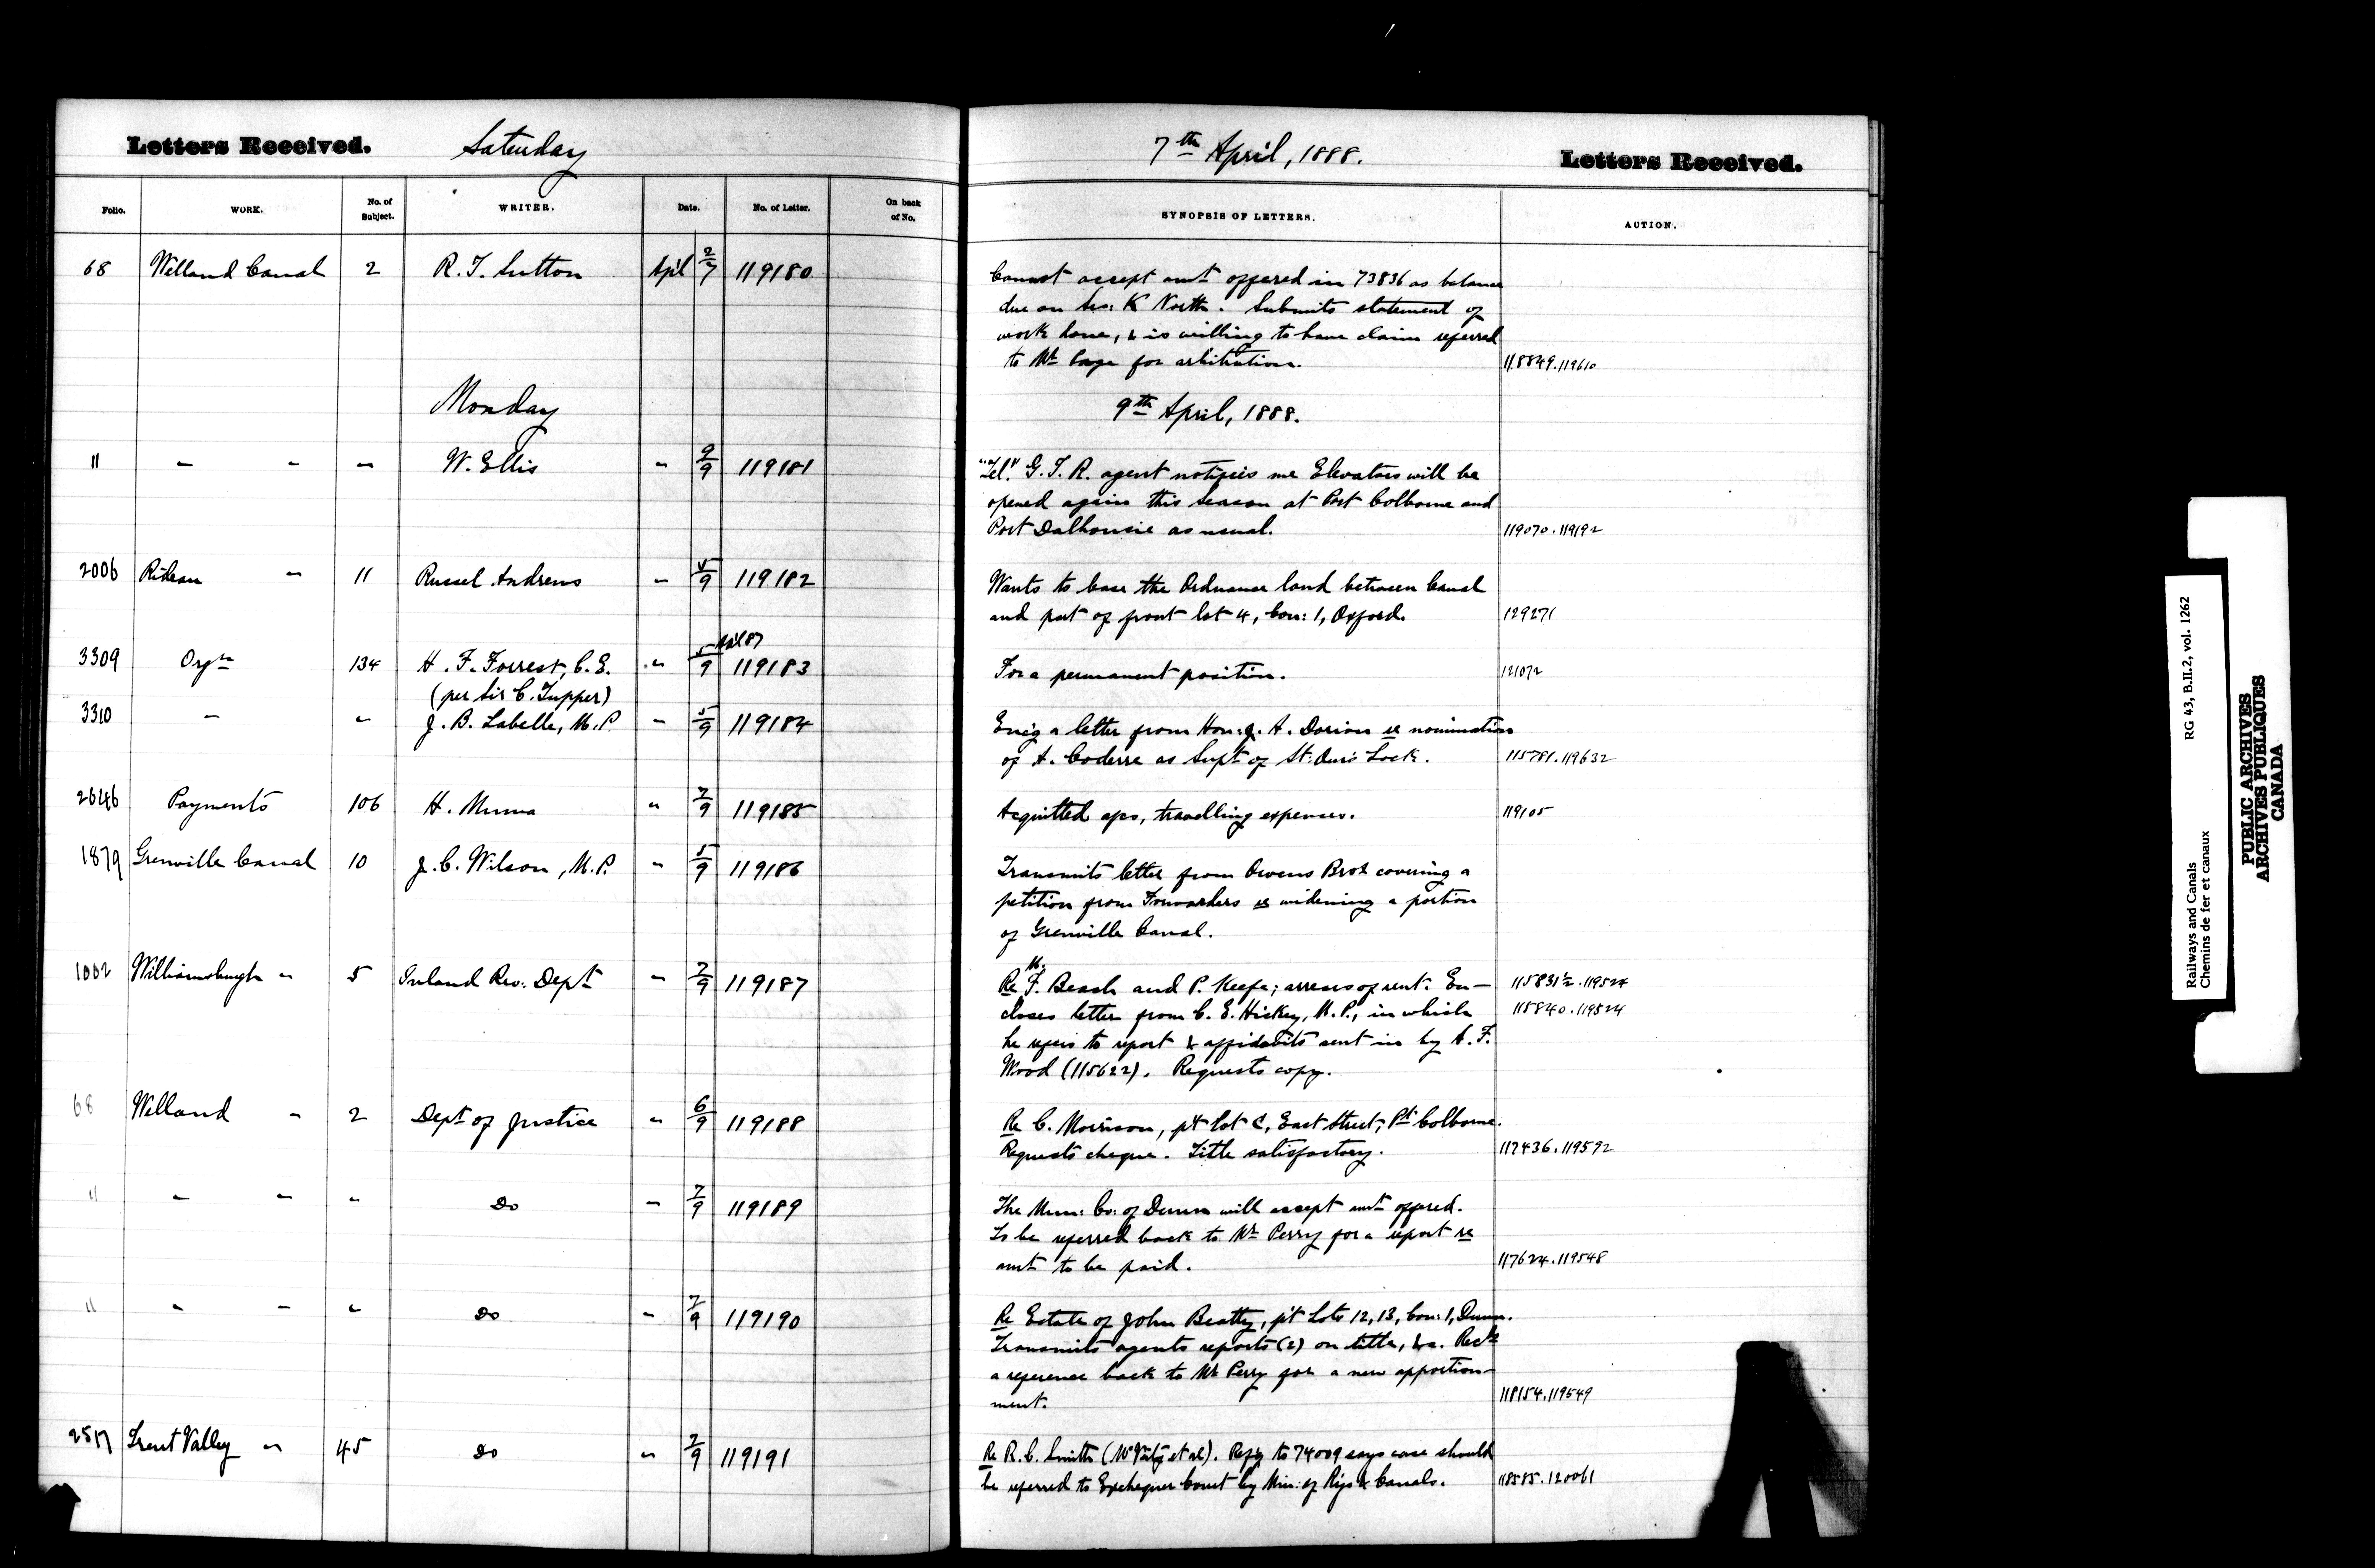 Letters Received. Saturday 7th April, 1888. Letters Received.
Folio. WORK. No. of Subject. WRITER. Date. No. of Letter. On back of No. SYNOPSIS OF LETTERS. ACTION.
68 Welland Canal 2 R. T. Sutton Apl 2/7 119180 Cannot accept amt offered in 73836 as balance
due on Sec: K North. Submits statement of
work done, & is willing to have claim referred
to Mr Page for arbitration. 118849.119610
Monday 9th April, 1888.
11 " " " W. Ellis " 9/9 119181 "Tel." G. T. R. agent notifies me Elevators will be
opened again this season at Port Colborne and
Port Dalhousie as usual. 119070.119192
2006 Rideau " 11 Russel Andrews " 5/9 119182 Wants to lease the Ordnance land between Canal
and part of front lot 4, Con: 1, Oxford. 129271
3309 Orgn 134 H. F. Forrest, C. E. " 5 Apl 87/9 119183 For a permanent position. 121072
(per Sir C. Tupper)
3310 " " J. B. Labelle, M.P. " 5/9 119184 Encg a letter from Hon: J. A. Dorion re nomination
of A. Coderre as Supt of St. Ours Lock. 115781.119632
2646 Payments 106 H. Munro " 7/9 119185 Acquitted a/cs, travelling expenses. 119105
1879 Grenville Canal 10 J. C. Wilson, M.P. " 5/9 119186 Transmits letter from Owens Bros covering a
petition from Forwarders re widening a portion
of Grenville Canal.
1002 Williamsburgh " 5 Inland Rev. Dept " 7/9 119187 Re M. F. Beach and P. Keefe; arrears of rent. En-
closes letter from C. E. Hickey, M.P., in which
he refers to report & affidavits sent in by A. F.
Wood (115622). Requests copy. 115831½.119524
115840.119524
68 Welland " 2 Dept of Justice " 6/9 119188 Re C. Morrison, pt Lot C, East Street, Pt Colborne.
Requests cheque. Title satisfactory. 117436.119592
" " " " Do " 7/9 119189 The Mun: Co: of Dunn will accept amt offered.
To be referred back to Mr Perry for a report re
amt to be paid. 117624.119548
" " " " Do " 7/9 119190 Re Estate of John Beatty, pt Lots 12, 13, Con: 1, Dunn.
Transmits agents reports (2) on title, &c. Recds
a reference back to Mr Perry for a new apportion-
ment. 118154.119549
2517 Trent Valley " 45 Do " 7/9 119191 Re R. C. Smith et al). Refg to 74009 says case should
be referred to Exchequer Court by Min: of Rys & Canals. 118585.120061
RG 43, B.II.2, vol. 1262
Railways and Canals
Chemins de fer et canaux
PUBLIC ARCHIVES
ARCHIVES PUBLIQUES
CANADA